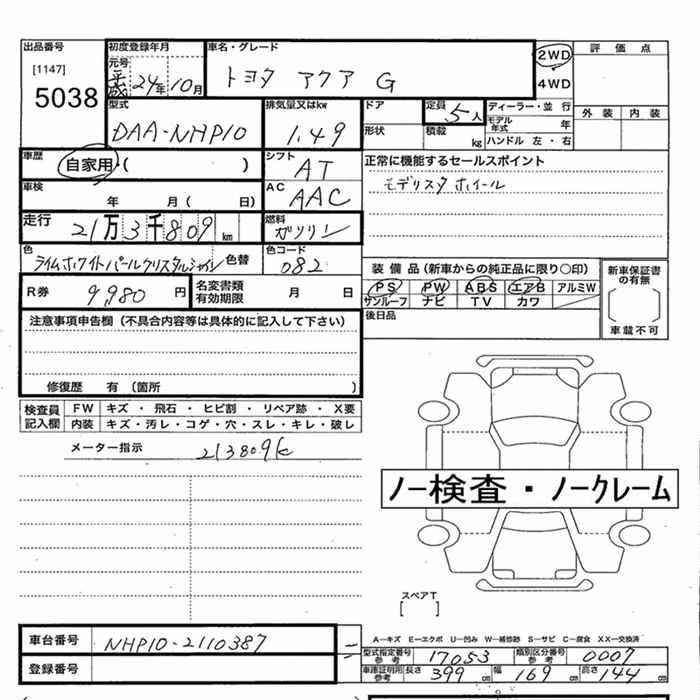 出品番号 初度登録年月 車名・グレード 評価点
[1147] 元号 平成 24年 10月 トヨタ アクア G 2WD
5038 4WD
型式 排気量又はkw ドア 定員 5人 ディーラー・並行 外装 内装
DAA-NHP10 1.49 形状 積載 kg モデル年式 年
ハンドル 左・右
車歴 自家用・( ) シフト AT 正常に機能するセールスポイント
車検 年 月( 日) AC AAC モデリスタ ホイール
走行 21万3千809km 燃料 ガソリン
色 ライムホワイトパールクリスタルシャイン 色替 色コード 082
R券 9,980円 名変書類有効期限 月 日
装備品(新車からの純正品に限り○印) 新車保証書の有無
PS PW ABS エアB アルミW
サンルーフ ナビ TV カワ
後日品 車載不可
注意事項申告欄(不具合内容等は具体的に記入して下さい)
修復歴 有(箇所 )
検査員記入欄 FW キズ・飛石・ヒビ割・リペア跡・X要
内装 キズ・汚レ・コゲ・穴・スレ・キレ・破レ
メーター指示 213809k
ノー検査・ノークレーム
スペアT
[ ]
A―キズ E―エクボ U―凹み W―補修跡 S―サビ C―腐食 XX―交換済
車台番号 NHP10-2110387
型式指定番号 参考 17053 類別区分番号 参考 0007
登録番号
車庫証明用 参考 長さ 399cm 幅 169cm 高さ 144cm